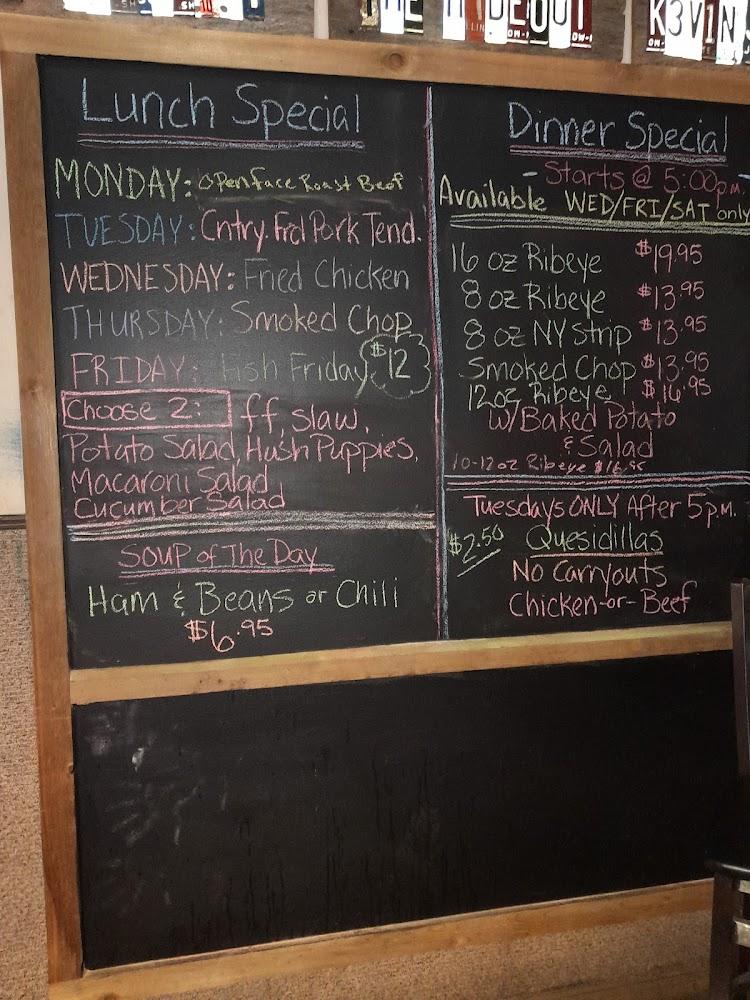 THE HIDEOUT
K3V1N
Lunch Special
MONDAY: Openface Roast Beef
TUESDAY: Cntry. Frd Pork Tend.
WEDNESDAY: Fried Chicken
THURSDAY: Smoked Chop
FRIDAY: Fish Friday $12
Choose 2: ff, slaw,
Potato Salad, Hush Puppies,
Macaroni Salad
Cucumber Salad
Soup of The Day
Ham & Beans or Chili
$6.95
Dinner Special
- Starts @ 5:00pm -
Available WED/FRI/SAT only
16 oz Ribeye $19.95
8 oz Ribeye $13.95
8 oz NY Strip $13.95
Smoked Chop $13.95
12oz Ribeye $16.95
w/Baked Potato
& Salad
10-12oz Ribeye $16.95
Tuesdays ONLY After 5p.m.
$2.50 Quesidillas
No Carryouts
Chicken-or-Beef